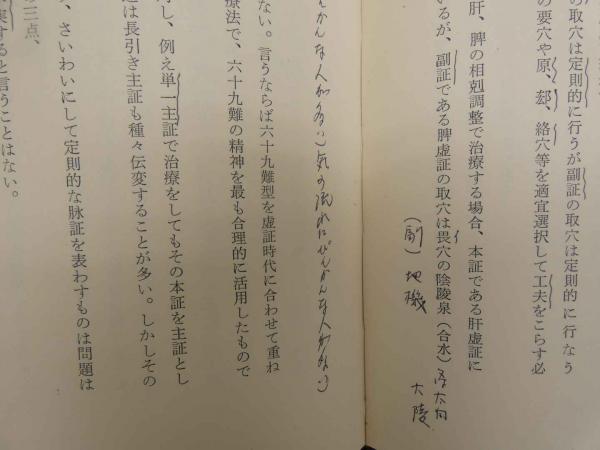 の取穴は定則的に行うが副証の取穴は定則的に行なう
の要穴や原、郄、絡穴等を適宜選択して工夫をこらす必
肝、脾の相剋調整で治療する場合、本証である肝虚証に
いるが、副証である脾虚証の取穴は畏穴の陰陵泉（合水）
イ
（副）地機
大陵
ない。言うならば六十九難型を虚証時代に合わせて重ね
療法で、六十九難の精神を最も合理的に活用したもので
し、例え単一主証で治療をしてもその本証を主証とし
は長引き主証も種々伝変することが多い。しかしその
、さいわいにして定則的な脉証を表わすものは問題は
三点、
すると言うことはない。